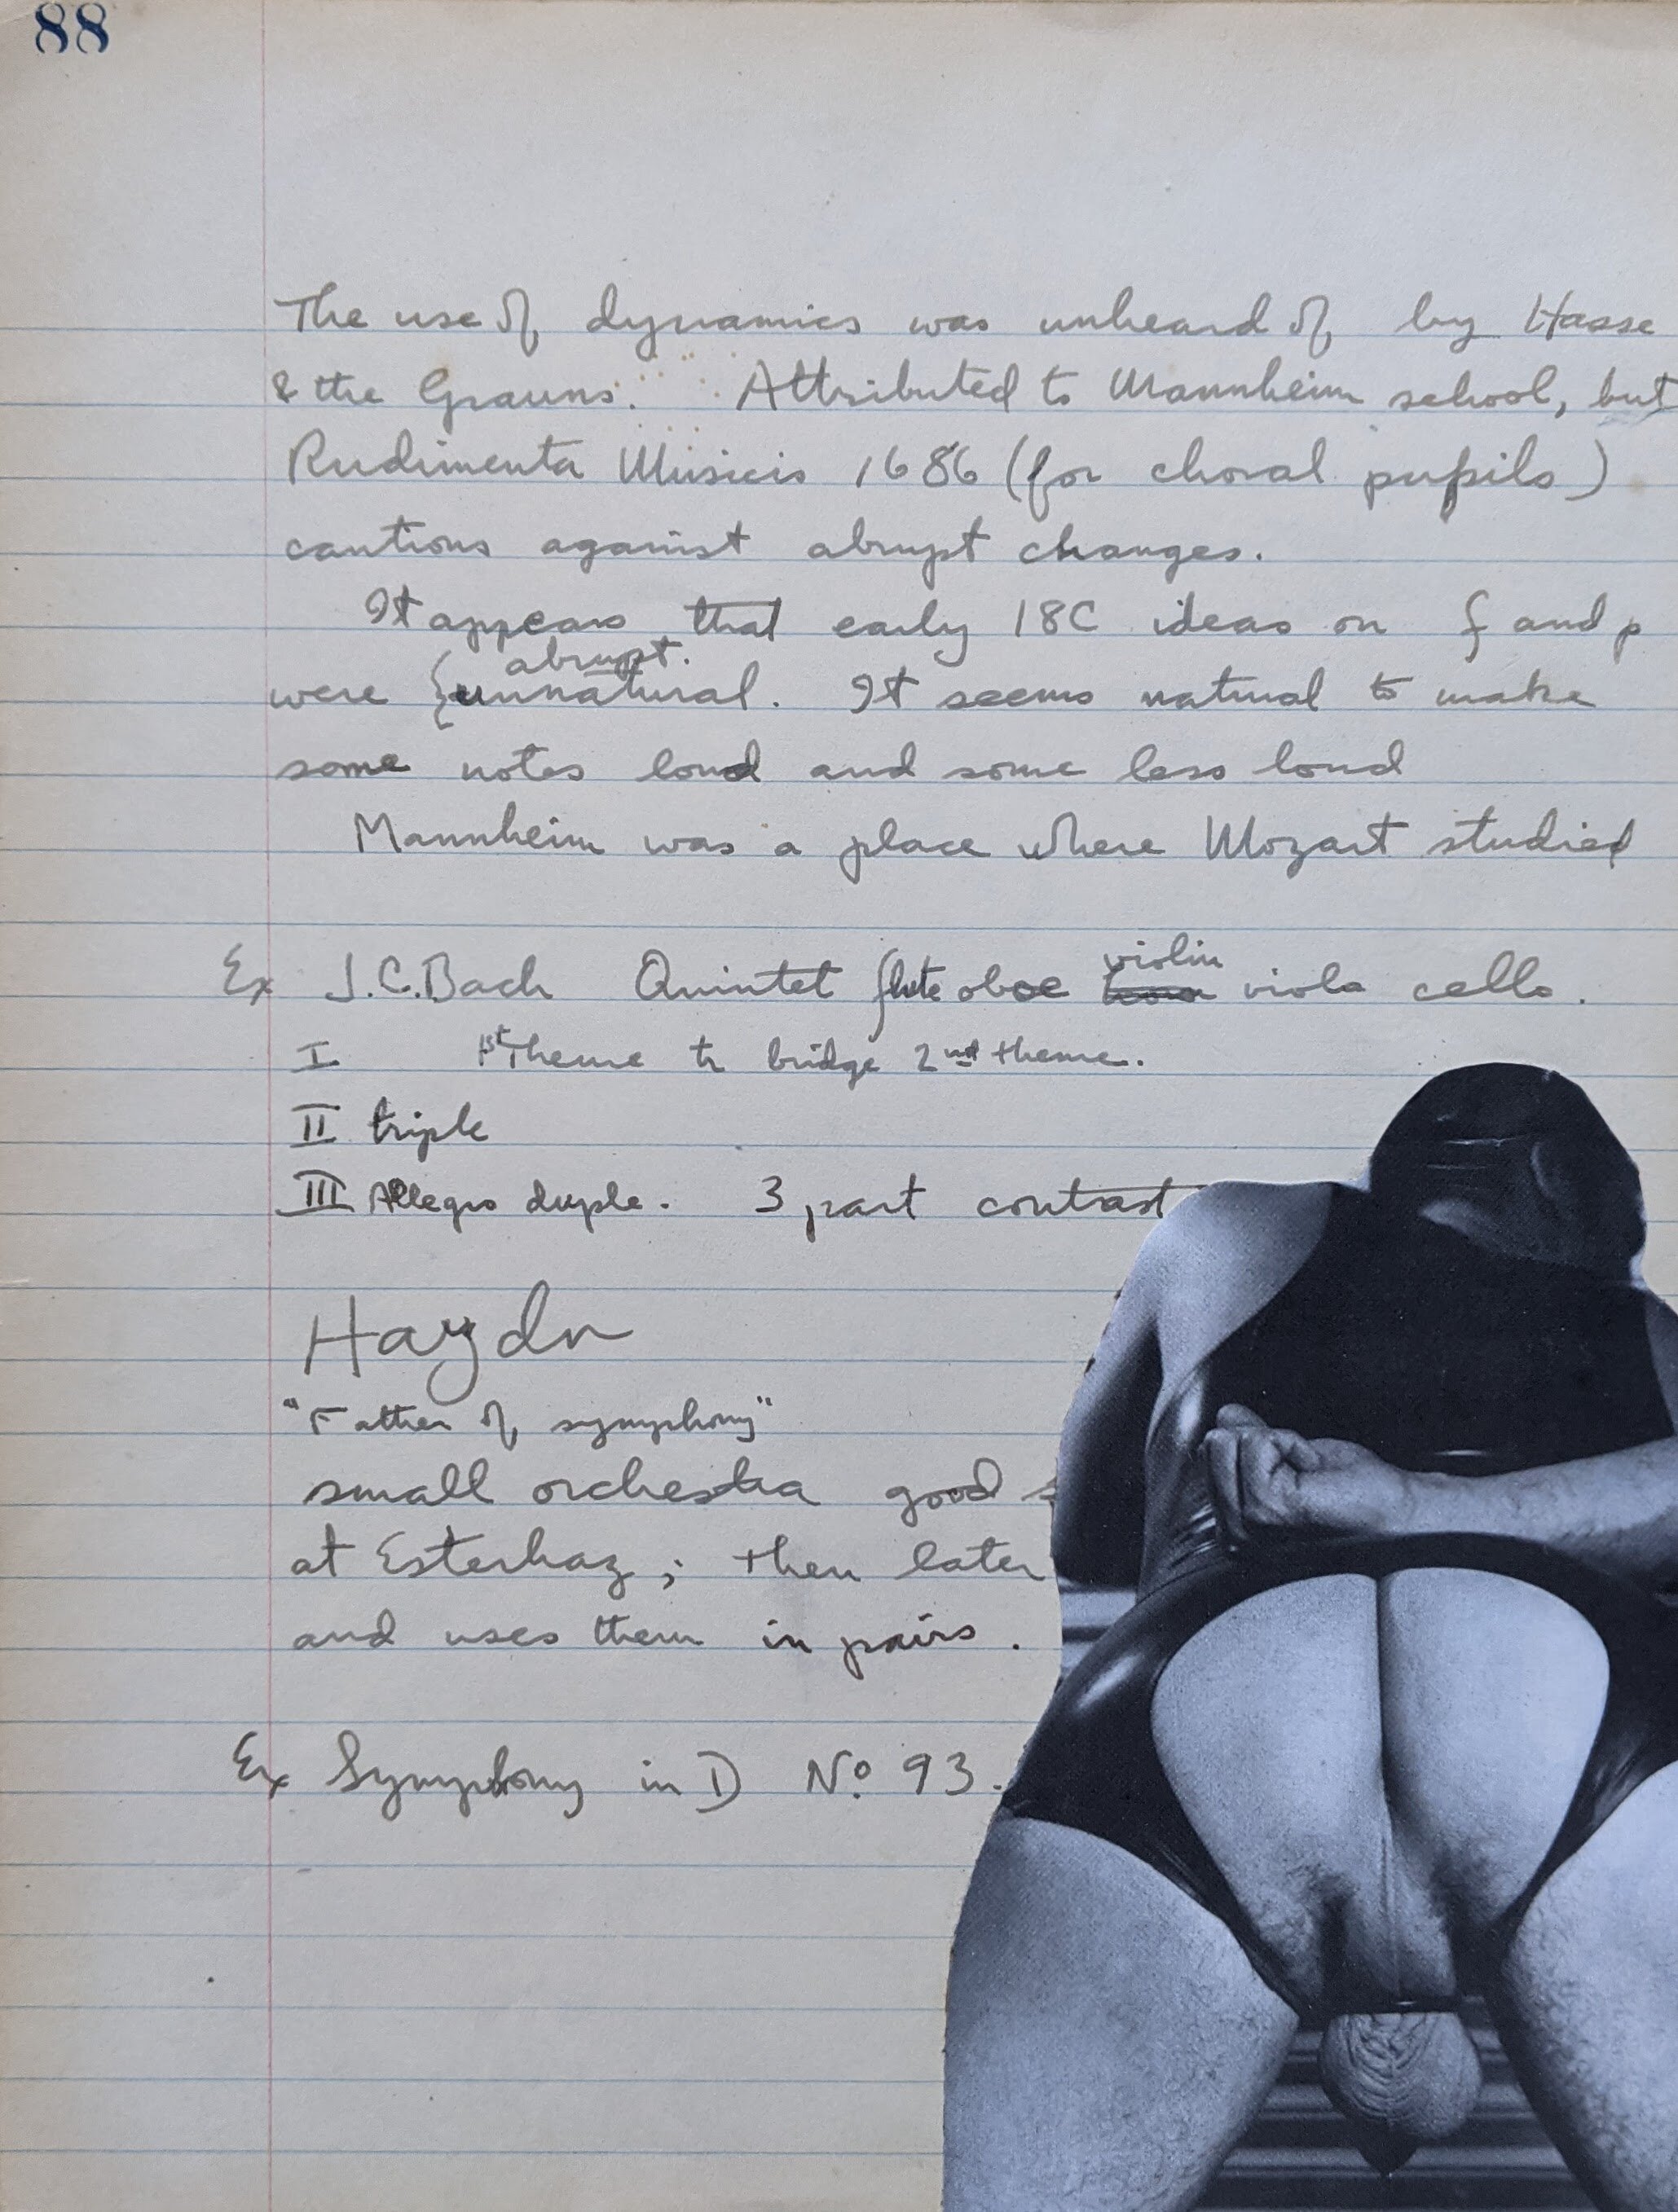 88
The use of dynamics was unheard of by Hasse
& the Grauns. Attributed to Mannheim school, but
Rudimenta Musicis 1686 (for choral pupils)
cautions against abrupt changes.
It appears that early 18C ideas on f and p
abrupt.
were {unnatural. It seems natural to make
some notes loud and some less loud
Mannheim was a place where Mozart studied
violin
Ex J.C.Bach Quintet flute oboe viola cello.
I 1st Theme to bridge 2nd theme.
II triple
III Allegro duple. 3 part contrast
Haydn
"Father of symphony"
small orchestra good
at Esterhaz; then later
and uses them in pairs.
Ex Symphony in D No. 93.